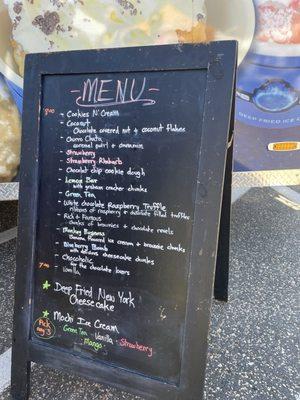 MENU
7.00
- Cookies N Cream
- Coconut
Chocolate covered nut & coconut flakes
- Churro Chata
caramel swirl + cinnamon
- Strawberry
- Strawberry Rhubarb
- Chocolate chip cookie dough
- Lemon Bar
with graham cracker chunks
- Green Tea
- White chocolate Raspberry Truffle
ribbons of raspberry & chocolate filled truffles
- Rich & Famous
chunks of brownies & chocolate
- Monkey Business
Banana flavored ice cream & brownie chunks
- Blueberry Bomb
with delicious cheesecake chunks
- Chocoholic
for the chocolate lovers
- Vanilla
7.00
Deep Fried New York
Cheesecake
Mochi Ice Cream
Pick any 3
Green Tea · Vanilla · Strawberry
· Mango ·
DEEP FRIED ICE